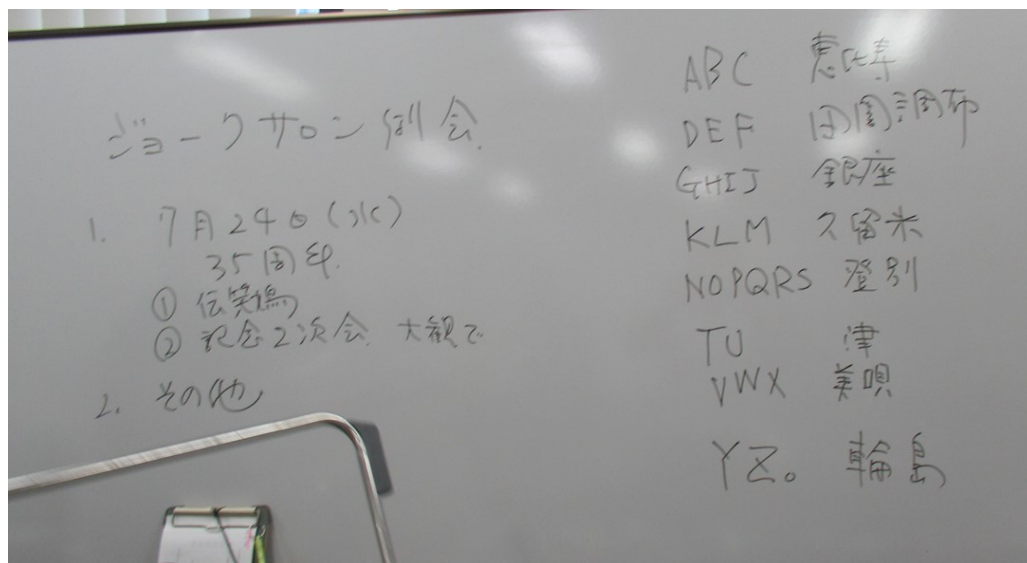 ジョークサロン例会
1. 7月24日(水)
35周年
① 伝笑鳩
② 記念2次会 大観で
2. その他
ABC 恵比寿
DEF 田園調布
GHIJ 銀座
KLM 久留米
NOPQRS 登別
TU 津
VWX 美唄
YZ。 輪島